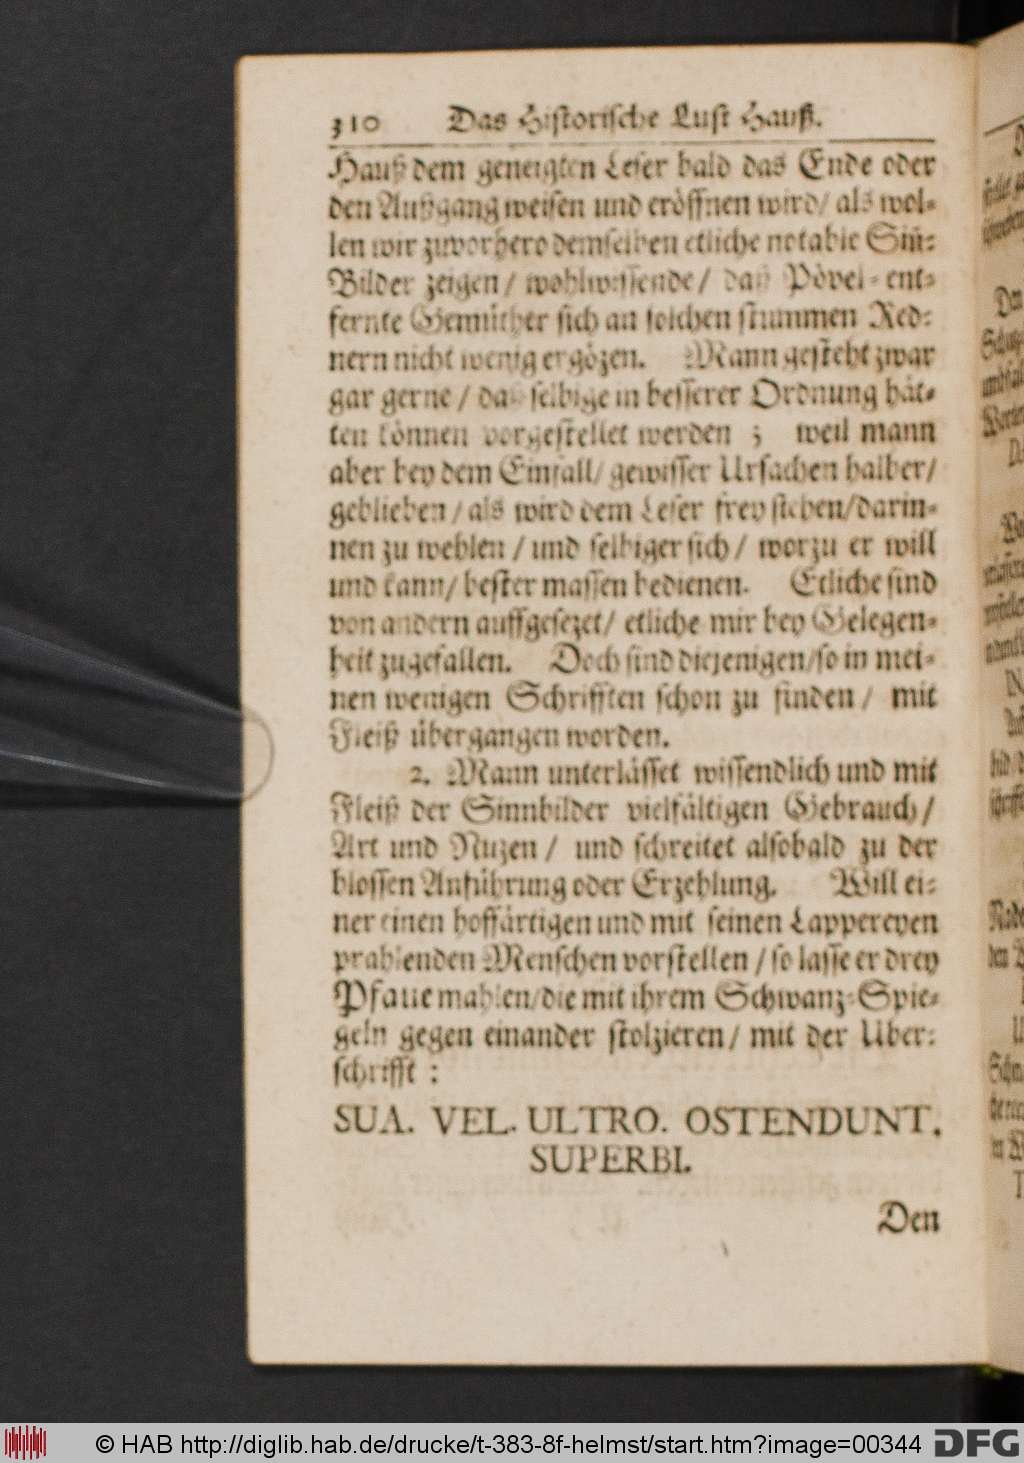 310 Das Historische Lust Hauß.
Hauß dem geneigten Leser bald das Ende oder
den Außgang weisen und eröffnen wird/ als wol-
len wir zuvorhero demselben etliche notable Siñ-
Bilder zeigen/ wohlwissende/ daß Pövel-ent-
fernte Gemüther sich an solchen stummen Red-
nern nicht wenig ergözen. Mann gesteht zwar
gar gerne/ daß selbige in besserer Ordnung hät-
ten können vorgestellet werden; weil mann
aber bey dem Einfall/ gewisser Ursachen halber/
geblieben/ als wird dem Leser frey stehen/ darin-
nen zu wehlen/ und selbiger sich/ worzu er will
und kann/ bester massen bedienen. Etliche sind
von andern auffgesezet/ etliche mir bey Gelegen-
heit zugefallen. Doch sind diejenigen/ so in mei-
nen wenigen Schrifften schon zu finden/ mit
Fleiß übergangen worden.
2. Mann unterlässet wissendlich und mit
Fleiß der Sinnbilder vielfältigen Gebrauch/
Art und Nuzen/ und schreitet alsobald zu der
blossen Anführung oder Erzehlung. Will ei-
ner einen hoffärtigen und mit seinen Lappereyen
prahlenden Menschen vorstellen/ so lasse er drey
Pfaue mahlen/ die mit ihrem Schwanz-Spie-
geln gegen einander stolzieren/ mit der Uber-
schrifft:
SUA. VEL. ULTRO. OSTENDUNT.
SUPERBI.
Den
© HAB http://diglib.hab.de/drucke/t-383-8f-helmst/start.htm?image=00344 DFG